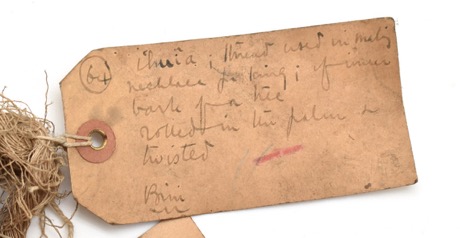 64 ; thread used in making
necklace for king ; of inner
bark of a tree
rolled in the palm &
twisted
Bini